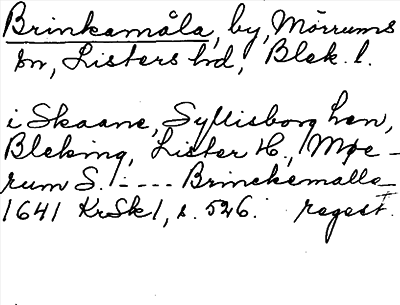 Brinkamåla, by, Mörrums
sn, Listers hd, Blek. l.
i Skaane, Syllisborg hen,
Bleking, Lister H., Møe-
rum S. - - - - Brinckemalla
1641 KrSk 1, s. 526. regest.